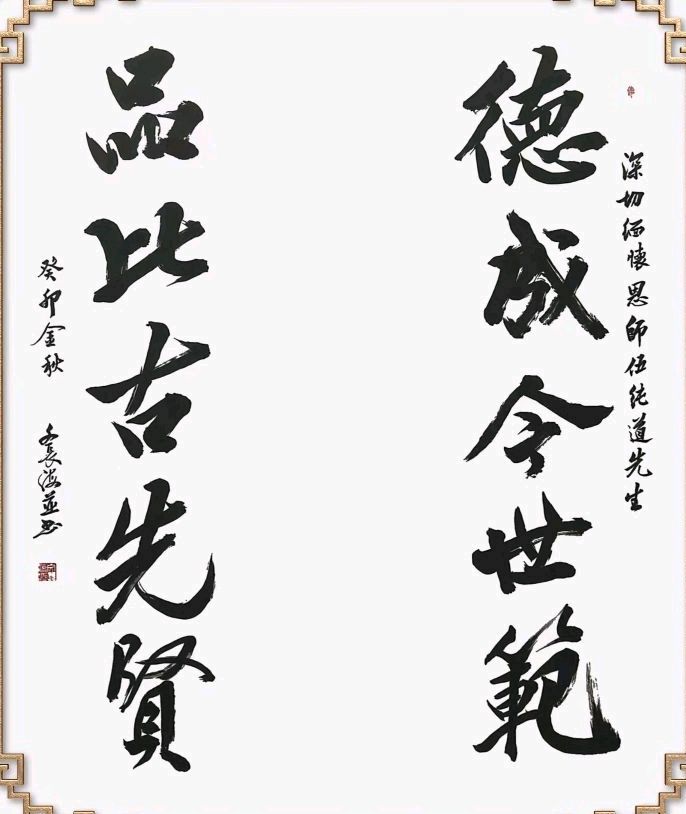 深切緬懷恩師伍純道先生
德成今世範
品比古先賢
癸卯金秋